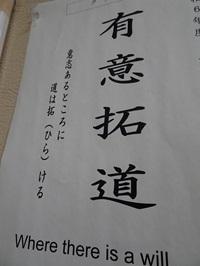 有意拓道
意志あるところに
道は拓（ひら）ける
Where there is a will